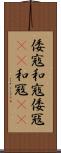 倭寇和寇倭冦
和冦